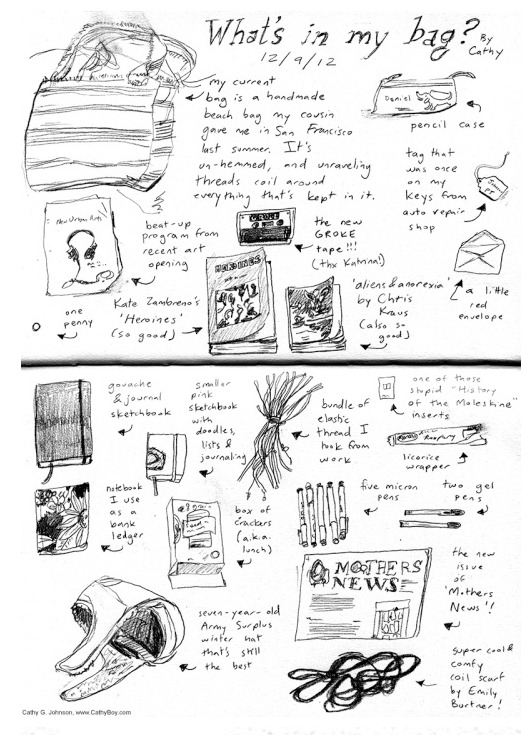 What's in my bag?
By Cathy
12/9/12
my current
bag is a handmade
beach bag my cousin
gave me in San Francisco
last summer. It's
un-hemmed, and unraveling
threads coil around
everything that's kept in it.
Daniel
pencil case
tag that
was once
on my
keys from
auto repair
shop
a little
red
envelope
New Urban Arts
beat-up
program from
recent art
opening
GROKE
the new
GROKE
tape!!!
(thx Katrina!)
one
penny
Kate Zambreno's
'Heroines'
(so good)
HEROINES
'aliens & anorexia'
by Chris
Kraus
(also so
good)
gouache
& journal
sketchbook
smaller
pink
sketchbook
with
doodles,
lists &
journaling
bundle of
elastic
thread I
took from
work
one of those
stupid "History
of the Moleskine"
inserts
licorice
wrapper
notebook
I use
as a
bank
ledger
box of
crackers
(a.k.a.
lunch)
five micron
pens
two gel
pens
MOTHERS
NEWS
the new
issue
of
'Mothers
News'!
seven-year-old
Army Surplus
winter hat
that's still
the best
super cool &
comfy
coil scarf
by Emily
Bortner!
Cathy G. Johnson, www.CathyBoy.com